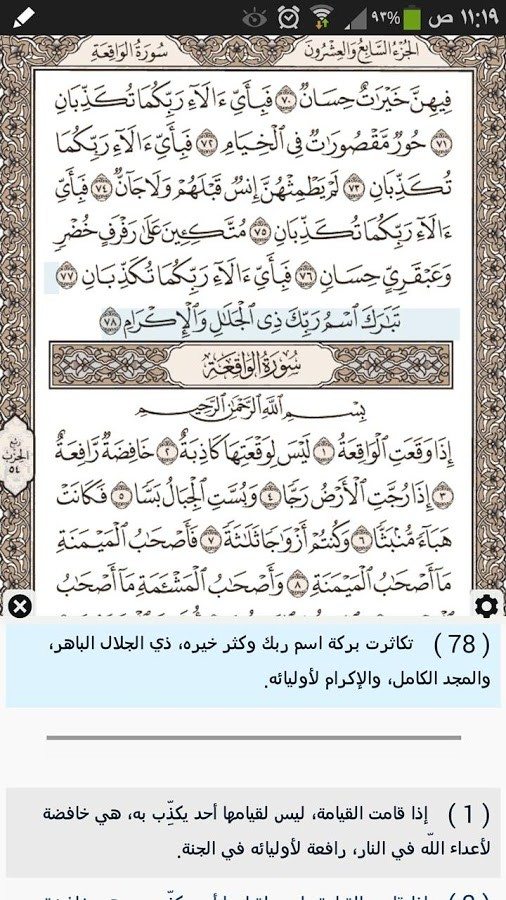 ١١:١٩ ص ٩٣%
الجزء السابع والعشرون
سورة الواقعة
فِيهِنَّ خَيْرَاتٌ حِسَانٌ ٧٠ فَبِأَيِّ ءَالَآءِ رَبِّكُمَا تُكَذِّبَانِ
٧١ حُورٌ مَّقْصُورَاتٌ فِي الْخِيَامِ ٧٢ فَبِأَيِّ ءَالَآءِ رَبِّكُمَا
تُكَذِّبَانِ ٧٣ لَمْ يَطْمِثْهُنَّ إِنسٌ قَبْلَهُمْ وَلَا جَآنٌّ ٧٤ فَبِأَيِّ
ءَالَآءِ رَبِّكُمَا تُكَذِّبَانِ ٧٥ مُتَّكِئِينَ عَلَى رَفْرَفٍ خُضْرٍ
وَعَبْقَرِيٍّ حِسَانٍ ٧٦ فَبِأَيِّ ءَالَآءِ رَبِّكُمَا تُكَذِّبَانِ ٧٧
تَبَارَكَ اسْمُ رَبِّكَ ذِي الْجَلَالِ وَالْإِكْرَامِ ٧٨
سُورَةُ الْوَاقِعَةِ
بِسْمِ اللَّهِ الرَّحْمَنِ الرَّحِيمِ
إِذَا وَقَعَتِ الْوَاقِعَةُ ١ لَيْسَ لِوَقْعَتِهَا كَاذِبَةٌ ٢ خَافِضَةٌ رَّافِعَةٌ
٣ إِذَا رُجَّتِ الْأَرْضُ رَجًّا ٤ وَبُسَّتِ الْجِبَالُ بَسًّا ٥ فَكَانَتْ
هَبَآءً مُّنۢبَثًّا ٦ وَكُنتُمْ أَزْوَاجًا ثَلَاثَةً ٧ فَأَصْحَابُ الْمَيْمَنَةِ
مَآ أَصْحَابُ الْمَيْمَنَةِ ٨ وَأَصْحَابُ الْمَشْـَٔمَةِ مَآ أَصْحَابُ
ربع
الحزب
٥٤
( 78 ) تكاثرت بركة اسم ربك وكثر خيره، ذي الجلال الباهر،
والمجد الكامل، والإكرام لأوليائه.
( 1 ) إذا قامت القيامة، ليس لقيامها أحد يكذِّب به، هي خافضة
لأعداء اللّه في النار، رافعة لأوليائه في الجنة.